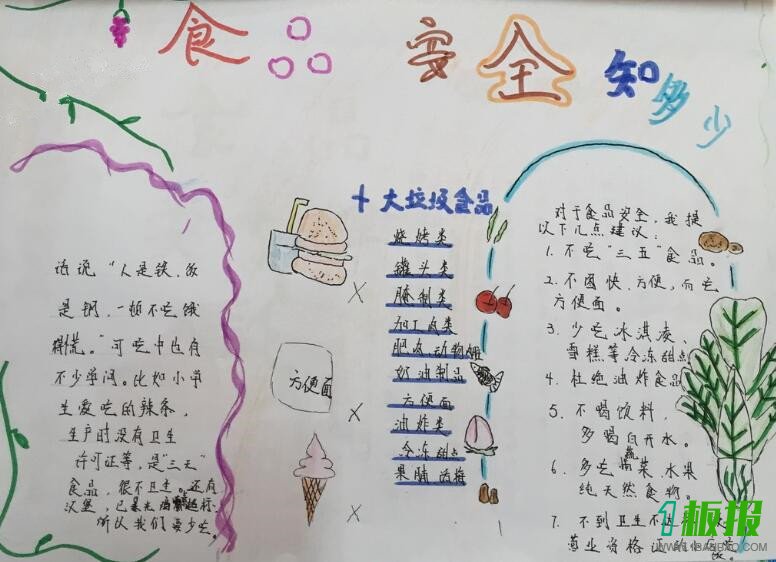 食品安全知多少
话说“人是铁，饭
是钢，一顿不吃饿
得慌。”可吃中也有
不少学问。比如小学
生爱吃的辣条，
生产时没有卫生
许可证等，是“三无”
食品，很不卫生。还有
汉堡，已
所以我们要少吃。
方便面
十大垃圾食品
烧烤类
罐头类
腌制类
加工肉类
肥肉、动物
奶油制品
方便面
油炸类
冷冻甜点
果脯话梅
对于食品安全，我提
以下几点建议：
1. 不吃“三五”食品。
2. 不图快、方便，而吃
方便面。
3. 少吃冰淇凌、
雪糕等冷冻甜点
4. 杜绝油炸食品
5. 不喝饮料，
多喝白开水。
6. 多吃蔬菜、水果
纯天然食物。
7. 不到卫生不达
营业资格证的
1板报
WWW.1BANBAO.COM